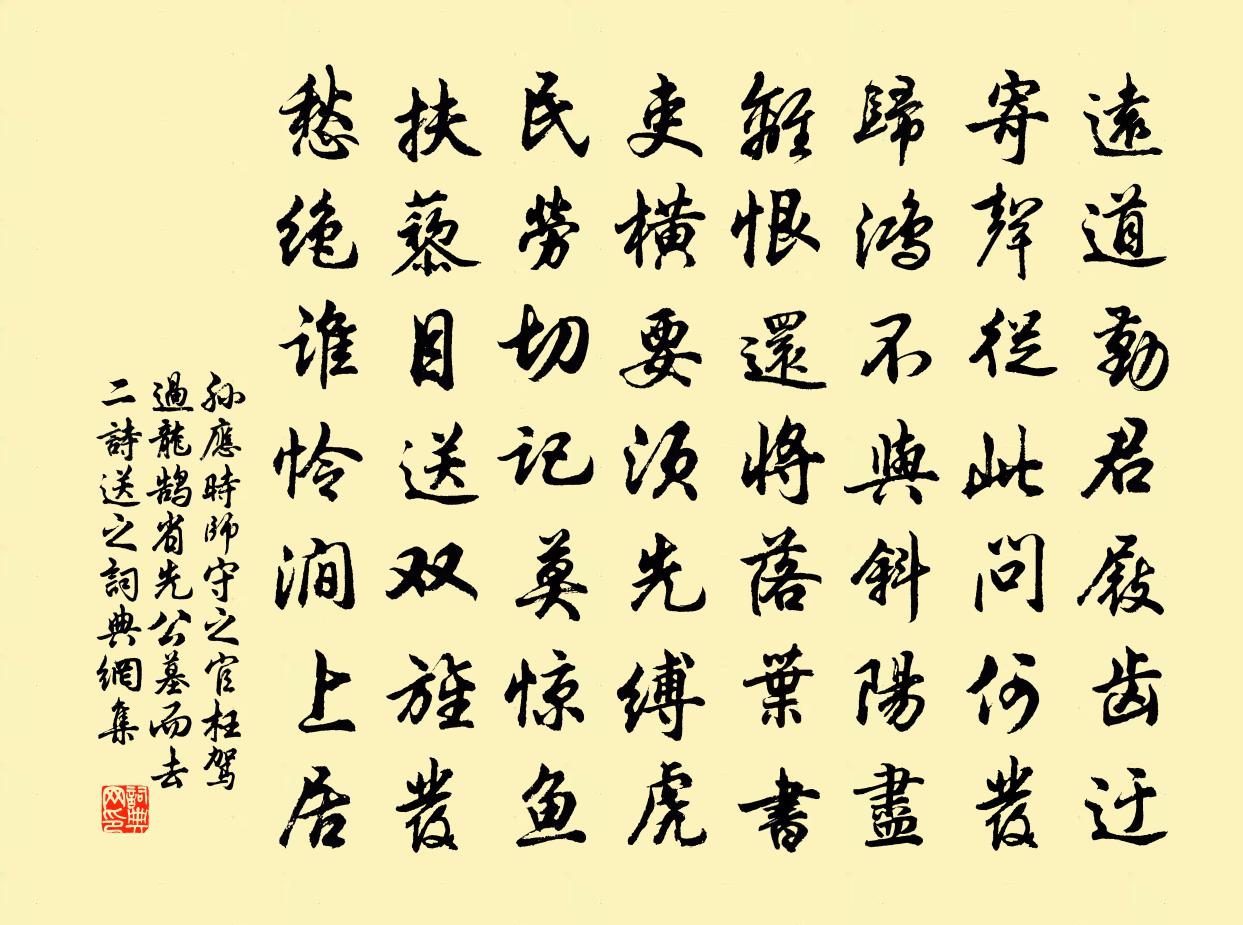 遠道勤君屐齿迂
寄聲從此問何發
歸鸿不與斜陽盡
離恨還將落葉書
吏橫要須先縛虎
民勞切记莫惊魚
扶藜目送双旌發
愁绝誰怜澗上居
孫應時師守之官枉駕
過龍鵠省先公墓而去
二詩送之詞典網集
詞典网印